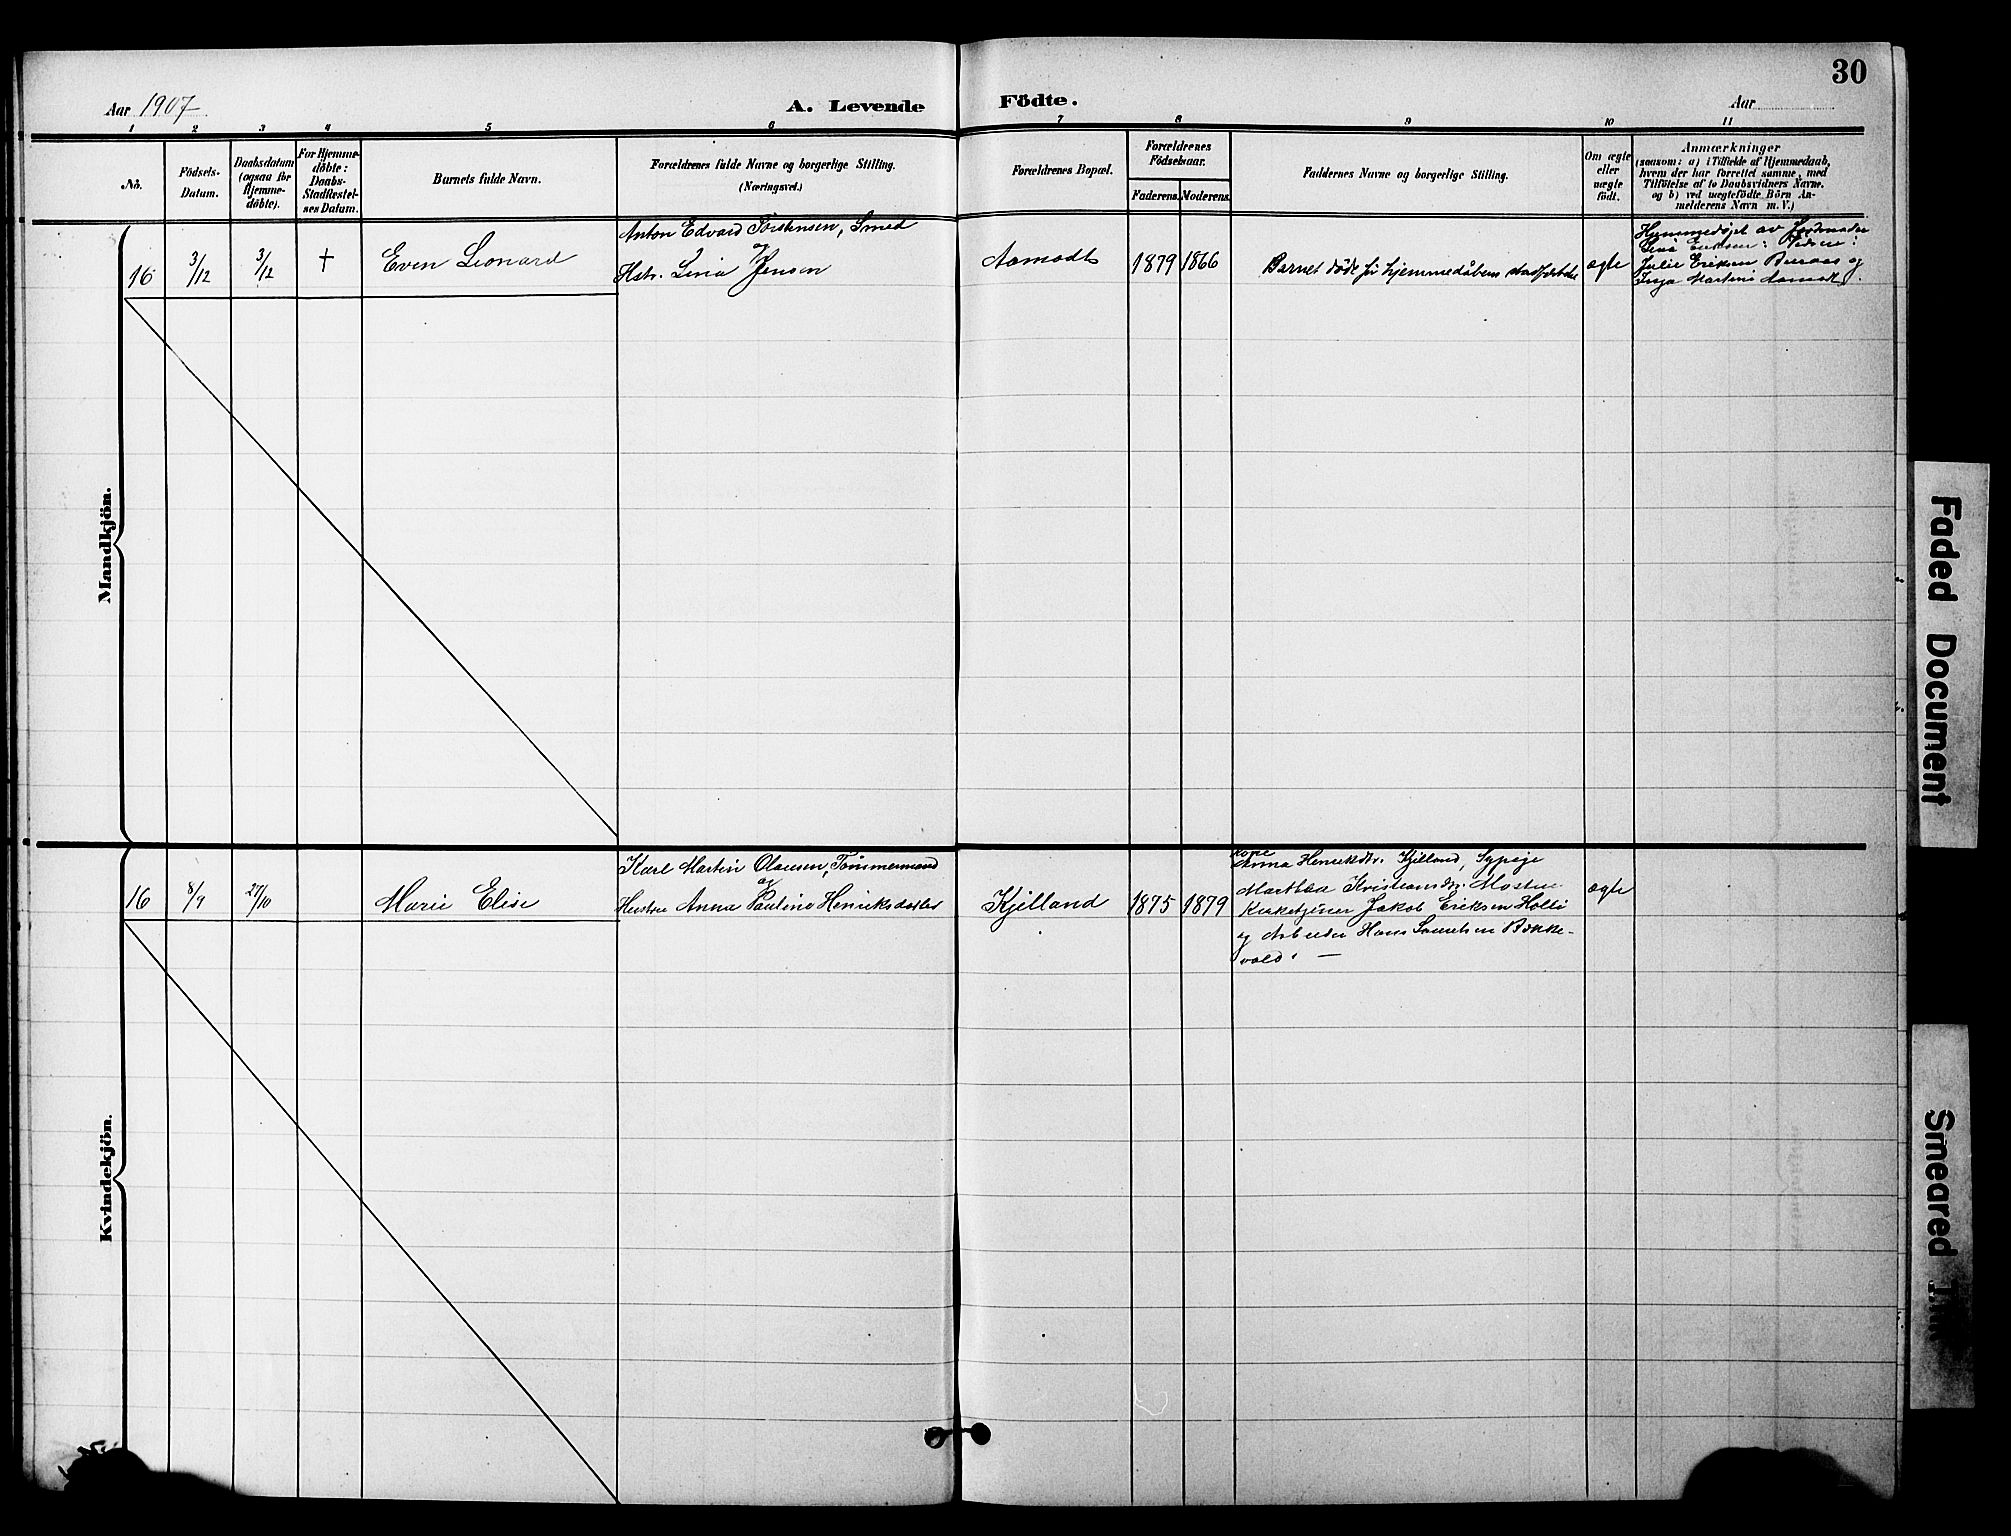 30
Aar 1907
A. Levende Födte.
Aar
1 2 3 4 5 6 7 8 9 10 11
No.
Födsels-
Datum.
Daabsdatum
(ogsaa for
Hjemme-
döbte).
For Hjemme-
döbte:
Daabs-
Stadfæstel-
ses Datum.
Barnets fulde Navn.
Forældrenes fulde Navne og borgerlige Stilling.
(Næringsvei.)
Forældrenes Bopæl.
Forældrenes
Födselsaar.
Faderens. Moderens.
Faddernes Navne og borgerlige Stilling.
Om ægte
eller
uægte
födt.
Anmærkninger
(saasom: a) i Tilfælde af Hjemmedaab,
hvem der har forrettet samme, med
Tilföielse af to Daabsvidners Navne.
og b) ved uægtefödte Börn An-
melderens Navn m. V.)
Mandkjön.
16
3/12
3/12
+
Even Leonard
Anton Edvard Torstensen, Smed
og
Hstr. Lina Jensen
Aamodt
1879
1866
Barnet døde før hjemmedåbens stadfæstelse
ægte
Hjemmedøpt av Jordmoder
Lina Eriksen: Vidner:
Julie Eriksen Buraas og
Inga Martini Aamodt
Kvindekjön.
16
8/9
27/10
Marie Elise
Karl Martin Olausen, Tømmermand
og
Hustru Anna Pauline Henriksdatter
Kjelland
1875
1879
Kone
Anna Henriksdtr. Kjelland, Sypige
Marthea Kristiansdtr. Mostue
Kirketjener Jakob Eriksen Holte
og Arbeider Hans Samuelsen Bække-
vold. —
ægte
Faded Document
Smeared Ink